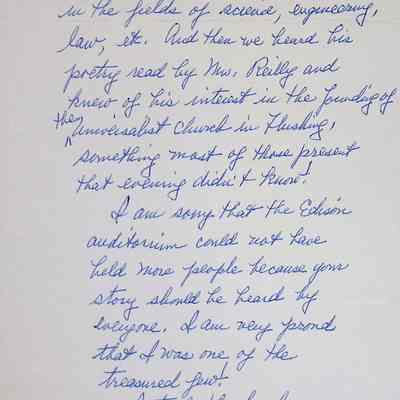 in the fields of science, engineering,
law, etc. And then we heard his
poetry read by Mrs. Reilly and
knew of his interest in the founding of
the Universalist Church in Flushing,
something most of those present
that evening didn't know!
I am sorry that the Edison
auditorium could not have
held more people because your
story should be heard by
everyone. I am very proud
that I was one of the
treasured few!